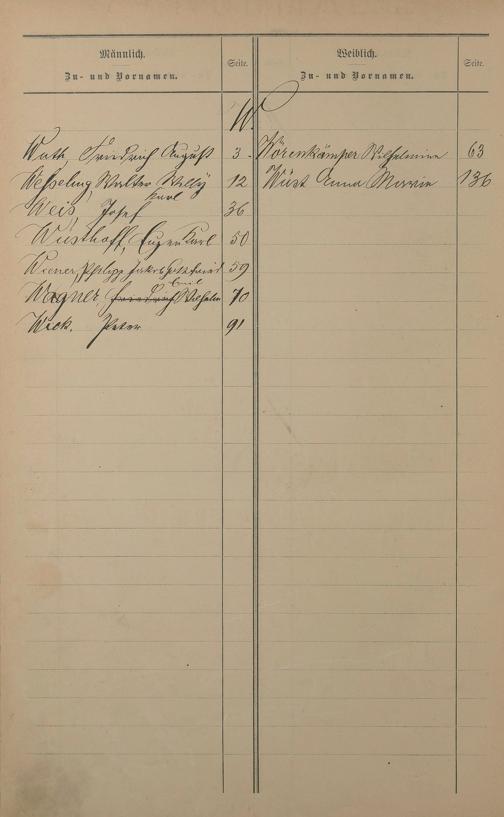 Männlich. Seite. Weiblich. Seite.
Zu- und Vornamen. Zu- und Vornamen.
W.
Wath, Friedrich August 3 - Wörenkämper Wilhelmine 63
Wesseling, Walter Willy 12 Wüst Anna Maria 136
Karl
Weis, Josef 36
Wüsthoff, Eugen Karl 50
Wiener, Philipp Jakob 59
Wagner Friedrich Wilhelm 70
Wick. Peter 91